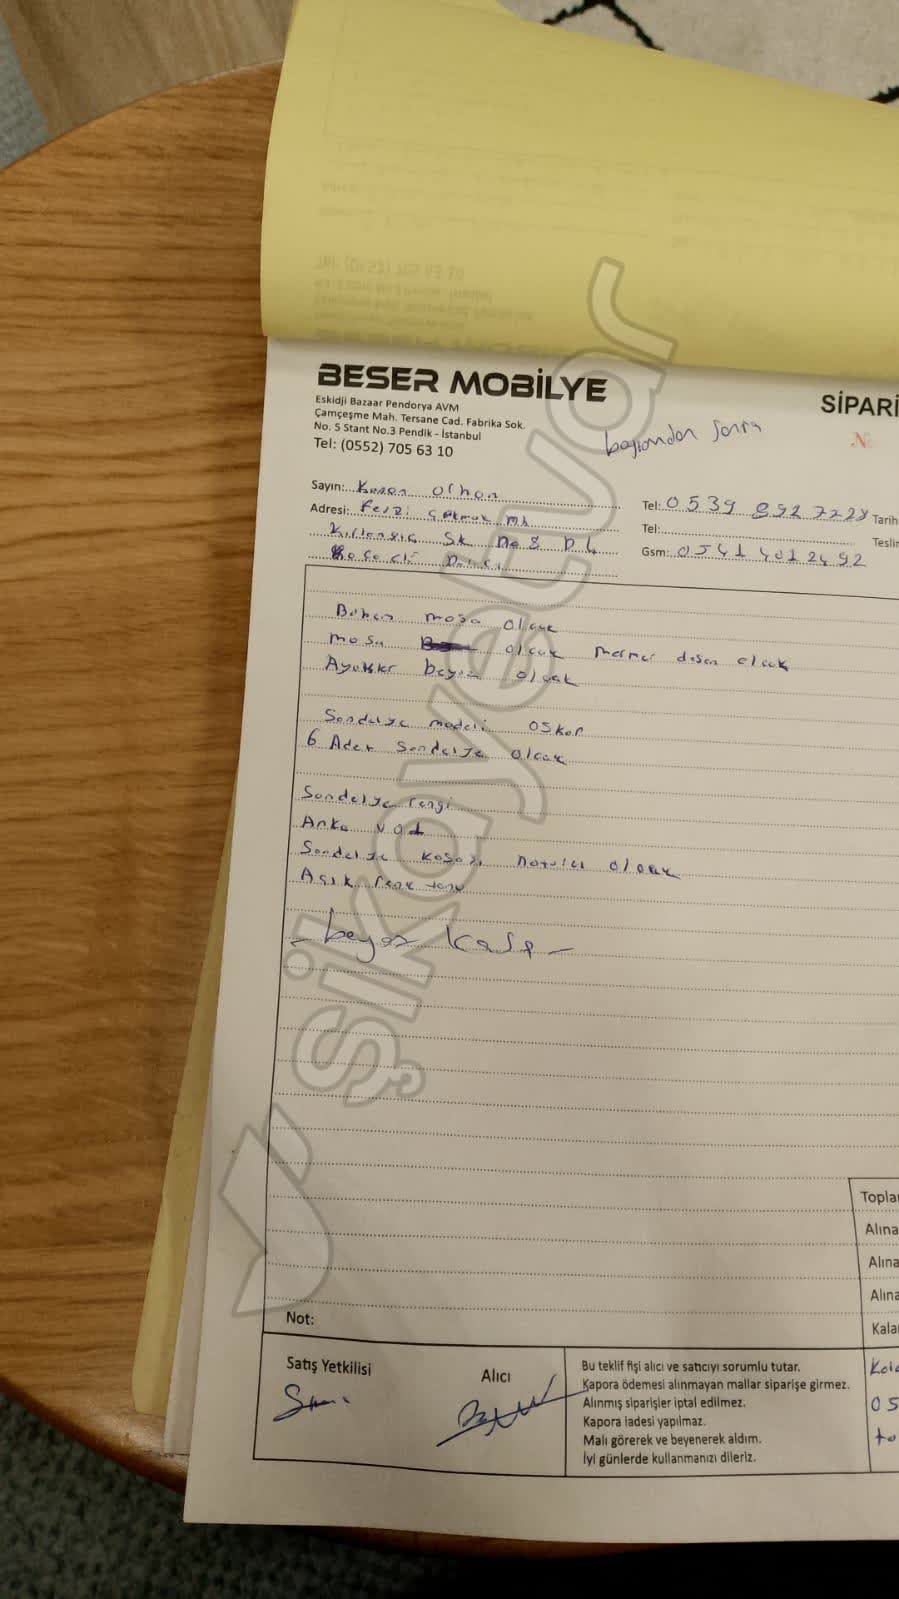 BESER MOBİLYE
Eskidji Bazaar Pendorya AVM
Çamçeşme Mah. Tersane Cad. Fabrika Sok.
No. 5 Stant No.3 Pendik - İstanbul
Tel: (0552) 705 63 10
SİPARİ
bayramdan sonra
№
Sayın: Kenan orhan
Adresi: Fevzi çakmak mh
Kırlangıç Sk no 8 D 4
Kocaeli Darıca
Tel: 0539 892 7228
Tel:
Gsm: 0541 401 2492
Tarih
Teslim
masa olcak
masa olcak mermer desen olcak
Ayaklar beyaz olcak
Sandalye modeli oskar
6 Adet Sandalye olcak
Sandalye rengi
Anka v01
Sandalye kasası naturel olcak
Açık renk tonu
- beyaz kasa -
Topla
Alına
Alına
Alına
Kala
Not:
Satış Yetkilisi
Alıcı
Bu teklif fişi alıcı ve satıcıyı sorumlu tutar.
Kapora ödemesi alınmayan mallar siparişe girmez.
Alınmış siparişler iptal edilmez.
Kapora iadesi yapılmaz.
Malı görerek ve beyenerek aldım.
İyi günlerde kullanmanızı dileriz.
05
şikayetvar